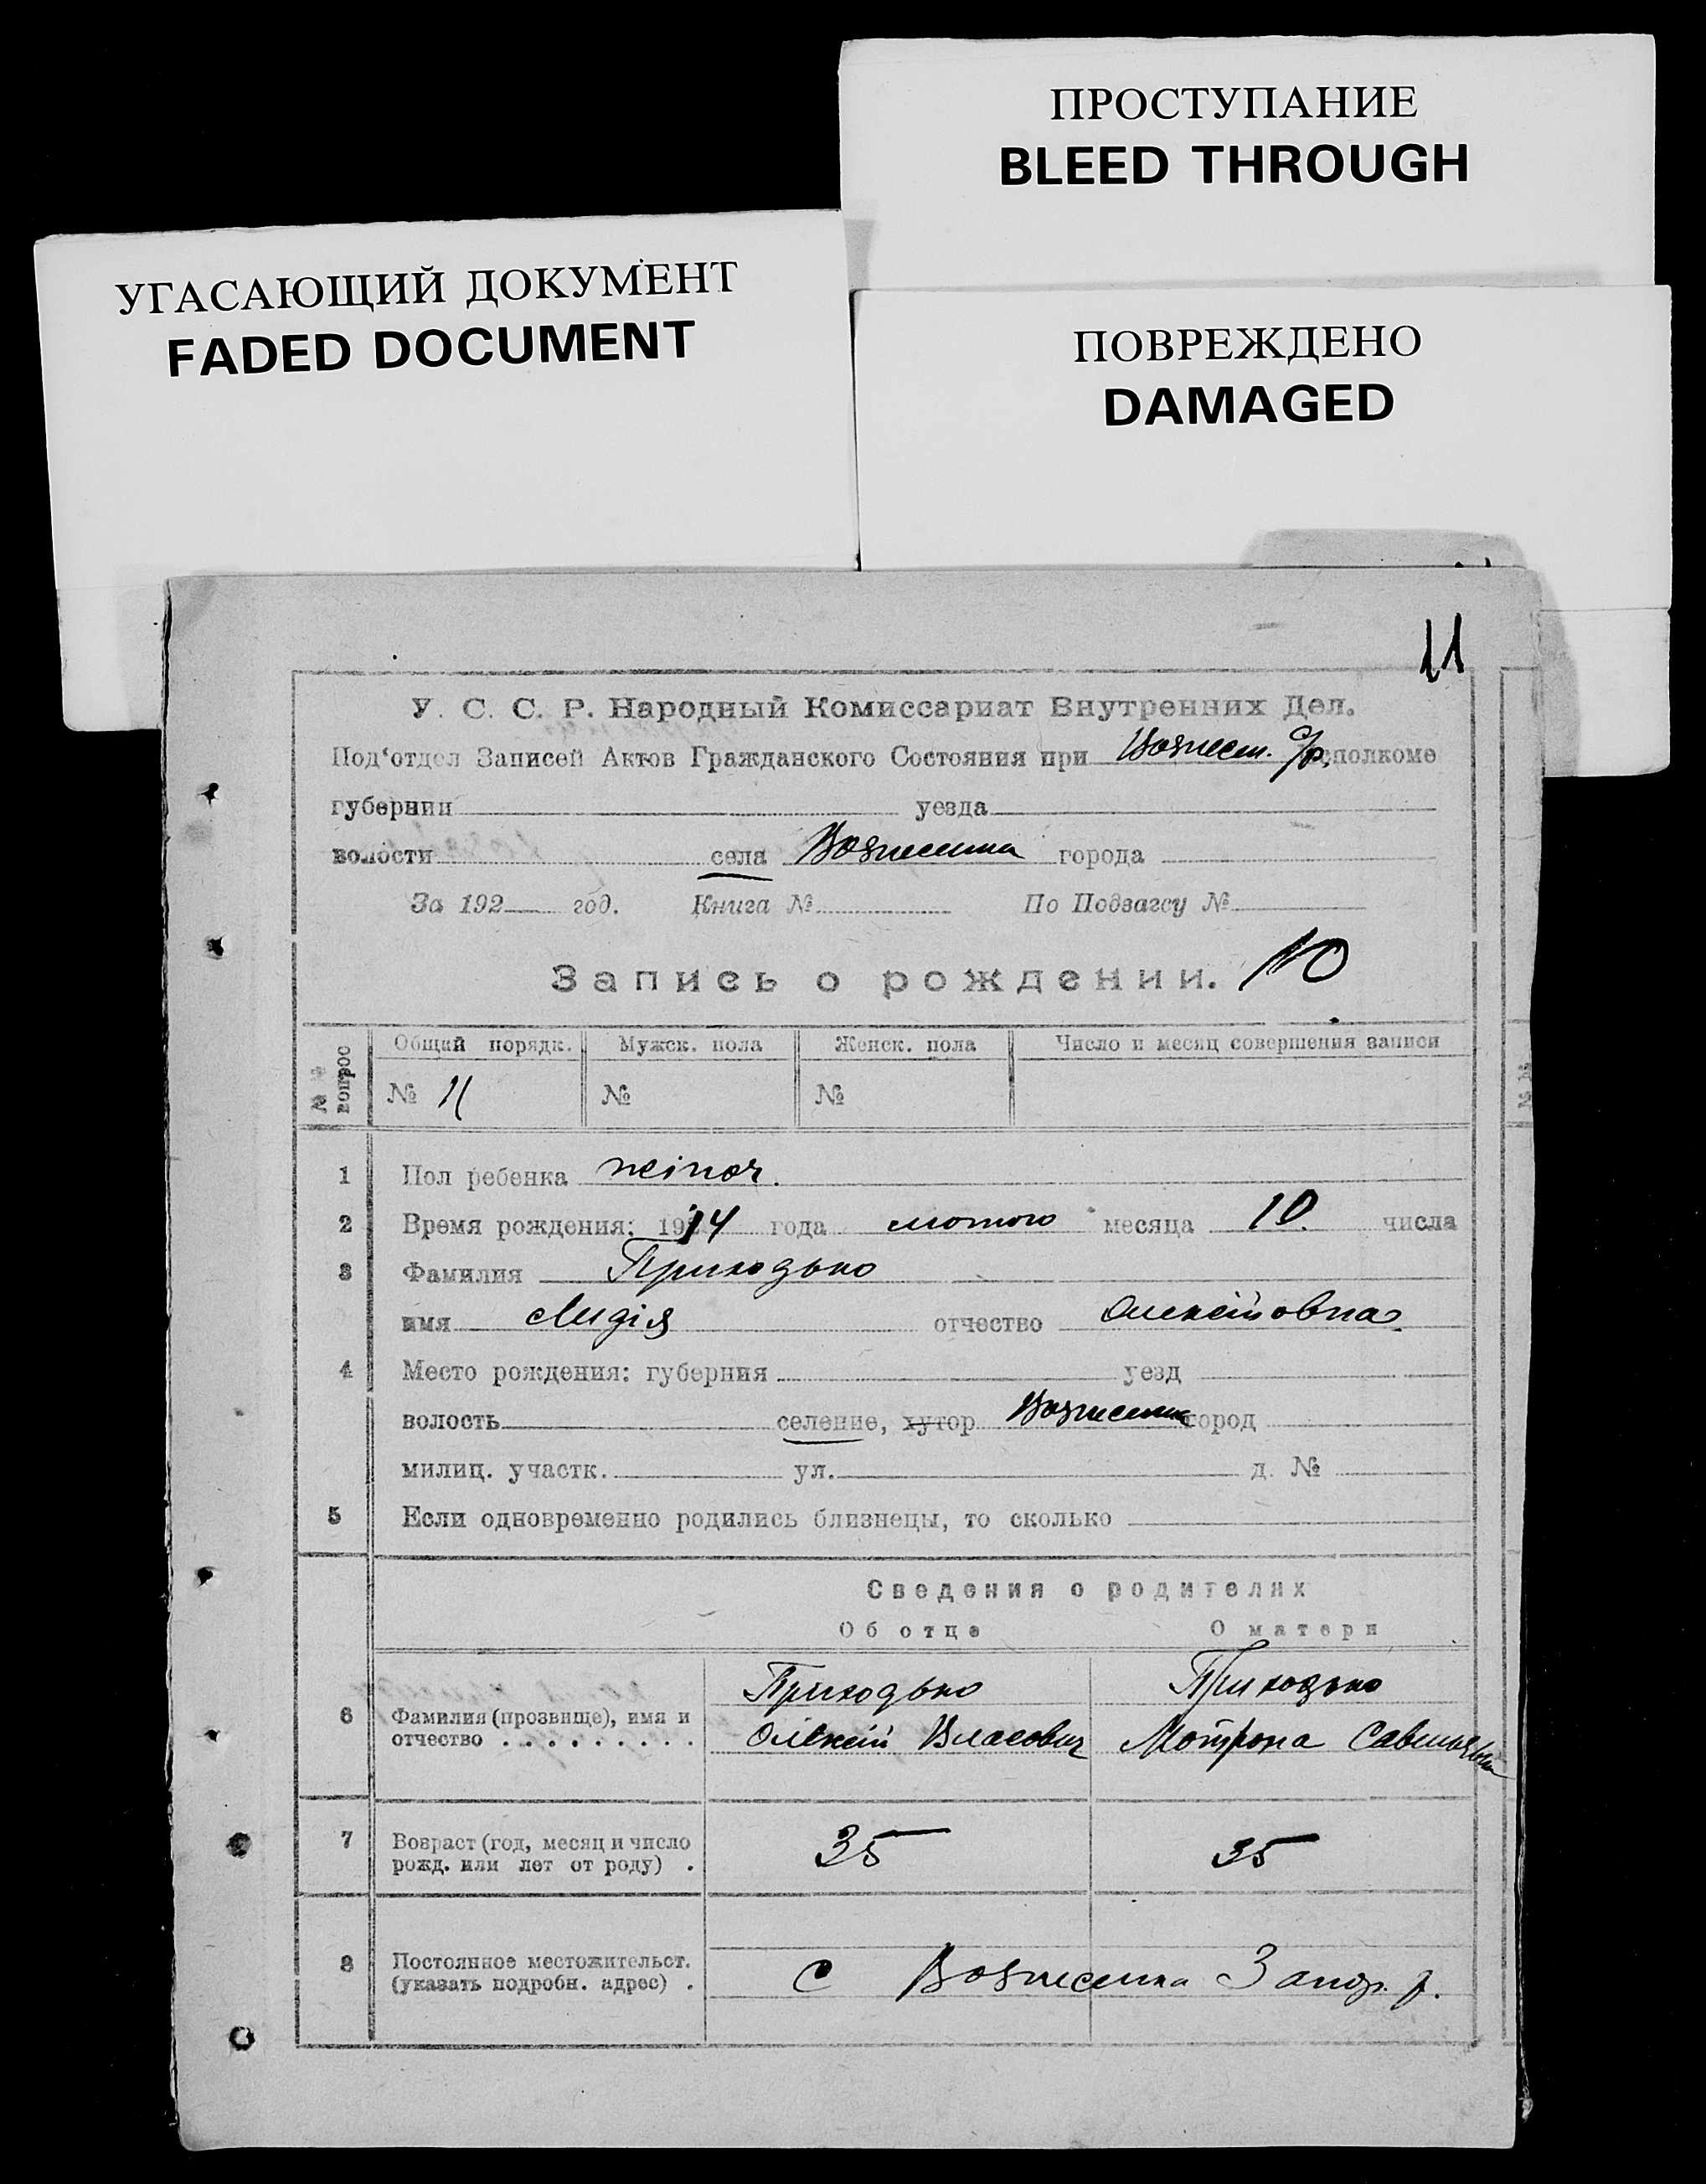 ПРОСТУПАНИЕ
BLEED THROUGH
УГАСАЮЩИЙ ДОКУМЕНТ
FADED DOCUMENT
ПОВРЕЖДЕНО
DAMAGED
11
У. С. С. Р. Народный Комиссариат Внутренних Дел.
Под‘отдел Записей Актов Гражданского Состояния при Вознесен. С/р. сполкоме
губернии уезда
волости села Вознесенка города
За 192 год. Книга № По Подзагсу №
Запись о рождении. 10
№ № вопрос Общий порядк. Мужск. пола Женск. пола Число и месяц совершения записи
№ 11 № №
1 Пол ребенка жіноч.
2 Время рождения: 1914 года лютого месяца 10. числа
3 Фамилия Приходько
имя Лидія отчество Олексіївна
4 Место рождения: губерния уезд
волость селение, хутор Вознесенка город
милиц. участк. ул. д. №
5 Если одновременно родились близнецы, то сколько
Сведения о родителях
Об отце О матери
Приходько Приходько
6 Фамилия (прозвище), имя и отчество . . . . . . . . . Олексій Власович Мотрона
7 Возраст (год, месяц и число рожд. или лет от роду) . 35 35
8 Постоянное местожительст. (указать подробн. адрес) . С Вознесенка Запор. р.